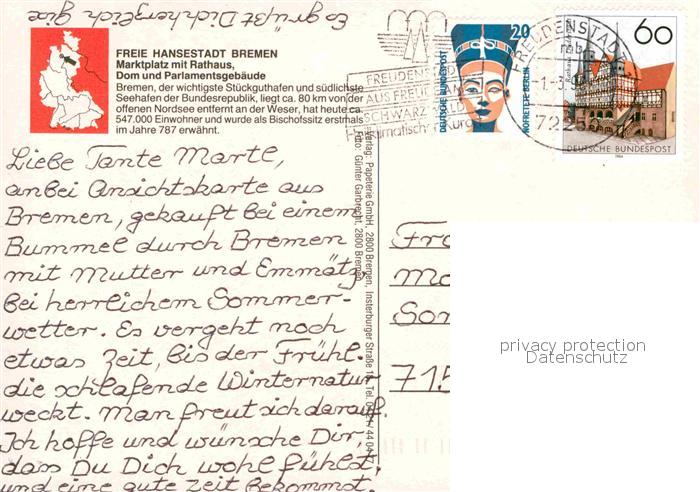 Es grüßt Dich herzlich
FREIE HANSESTADT BREMEN
Marktplatz mit Rathaus,
Dom und Parlamentsgebäude
Bremen, der wichtigste Stückguthafen und südlichste
Seehafen der Bundesrepublik, liegt ca. 80 km von der
offenen Nordsee entfernt an der Weser, hat heute ca.
547.000 Einwohner und wurde als Bischofssitz erstmals
im Jahre 787 erwähnt.
Liebe Tante Martl,
anbei Ansichtskarte aus
Bremen, gekauft bei einem
Bummel durch Bremen
mit Mutter und Emmätz,
bei herrlichem Sommer-
wetter. Es vergeht noch
etwas Zeit, bis der Frühl.
die schlafende Winternatur
weckt. Man freut sich darauf.
Ich hoffe und wünsche Dir,
dass Du Dich wohl fühlst,
und eine gute Zeit bekommst.
Verlag: Papeterie GmbH, 2800 Bremen, Insterburger Straße
Foto: Günter Garbrecht, 2800 Bremen
FREUDENSTADT
SCHWARZWALD
20
DEUTSCHE BUNDESPOST
NOFRETETE BERLIN
REUDENSTADT
60
DEUTSCHE BUNDESPOST
1984
Fr
Ma
So
715
privacy protection
Datenschutz